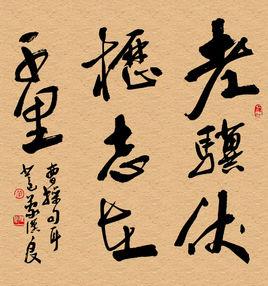 老驥伏
櫪志在
千里
曹操句